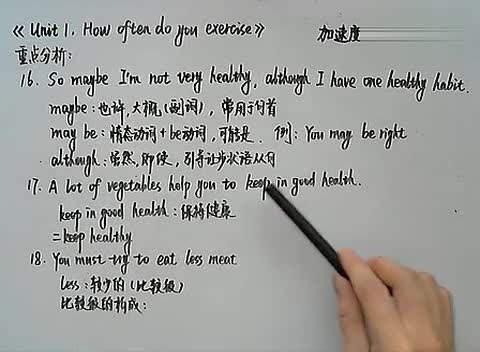 《Unit 1. How often do you exercise》
加速度
重点分析:
16. So maybe I'm not very healthy, although I have one healthy habit.
maybe:也许,大概(副词),常用于句首
may be:情态动词+be动词,可能是. 例:You may be right
although:虽然,即使,引导让步状语从句
17. A lot of vegetables help you to keep in good health.
keep in good health:保持健康
=keep healthy
18. You must try to eat less meat
less:较少的(比较级)
比较级的构成: